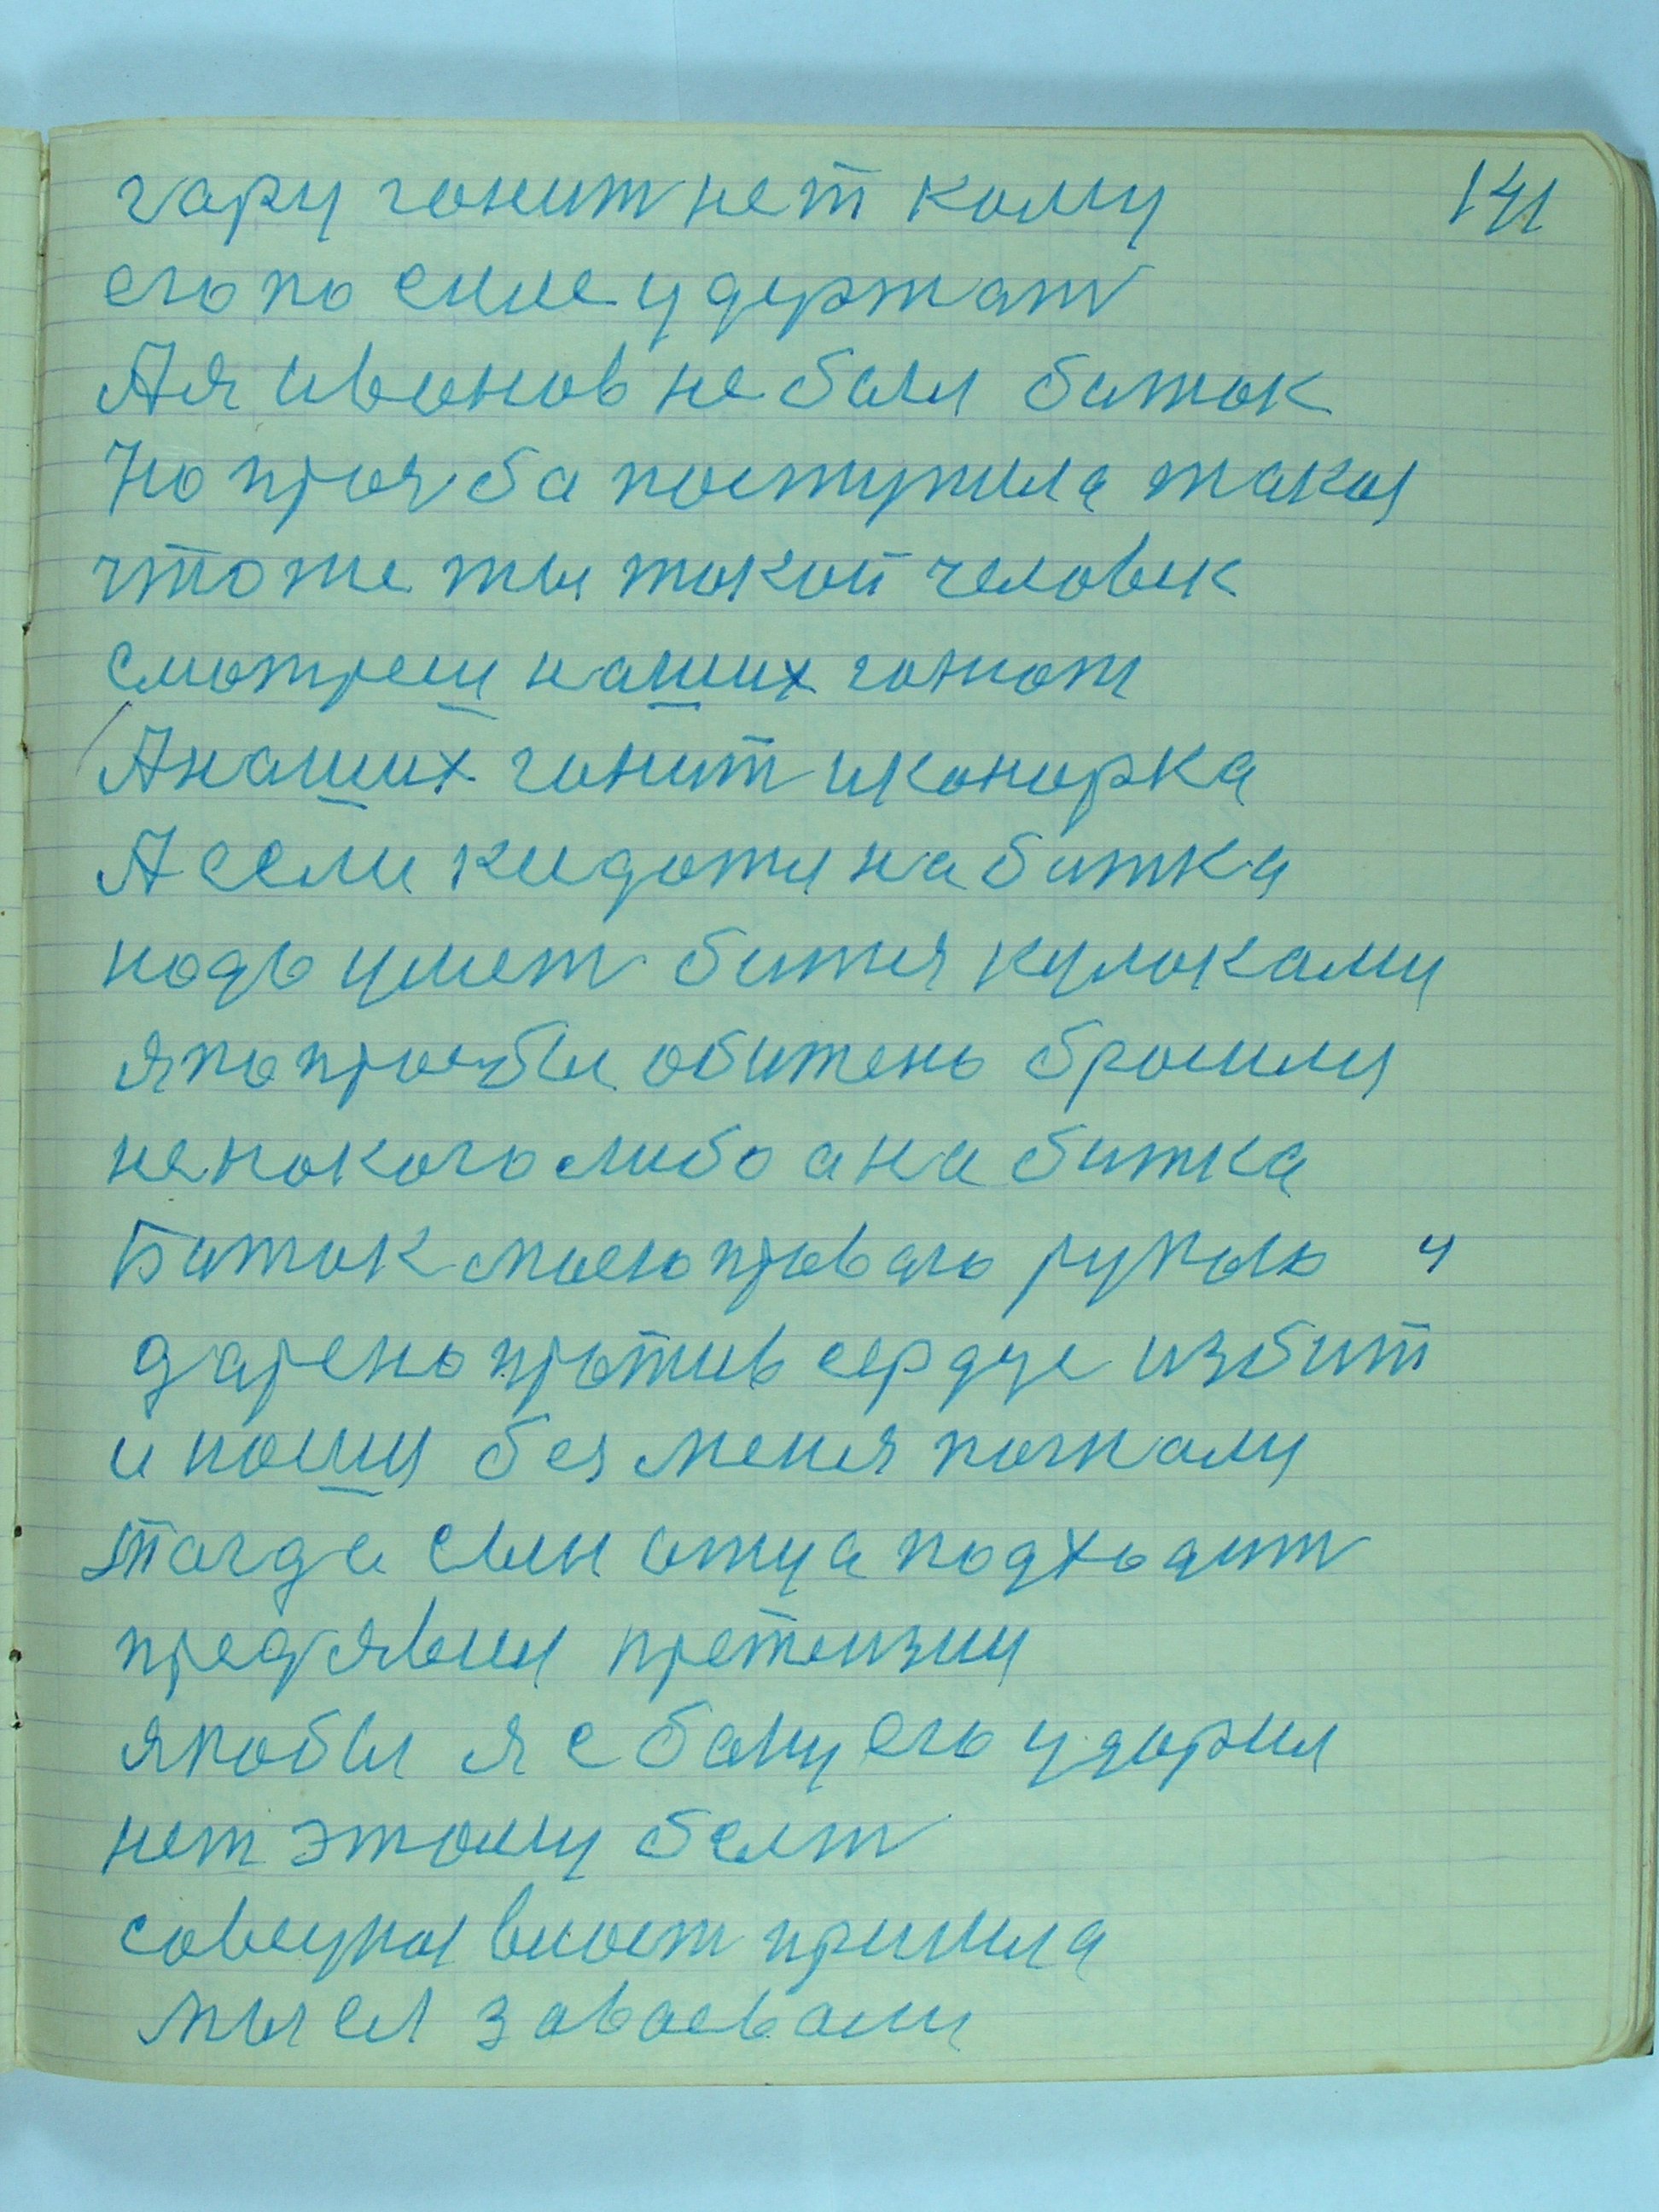 гару гонит нет кому 141
его по силе удержат
А я иванов не бали биток
Но прозба поступила такая
чтоже ты такой человек
смотреш наших гонют
А наших гонит и конорка
А если кидатся на битка
надо умет битися кулаками
я по прозбы обижено бросился
не на кого либо а на битка
Биток моею правою рукою у
дарено против сердце избит
и наши без меня погнали
Тогда сын отца подходит
предявил претензии
якобы я с баку его ударил
нет этому бывт
пришла
мысл заваевали